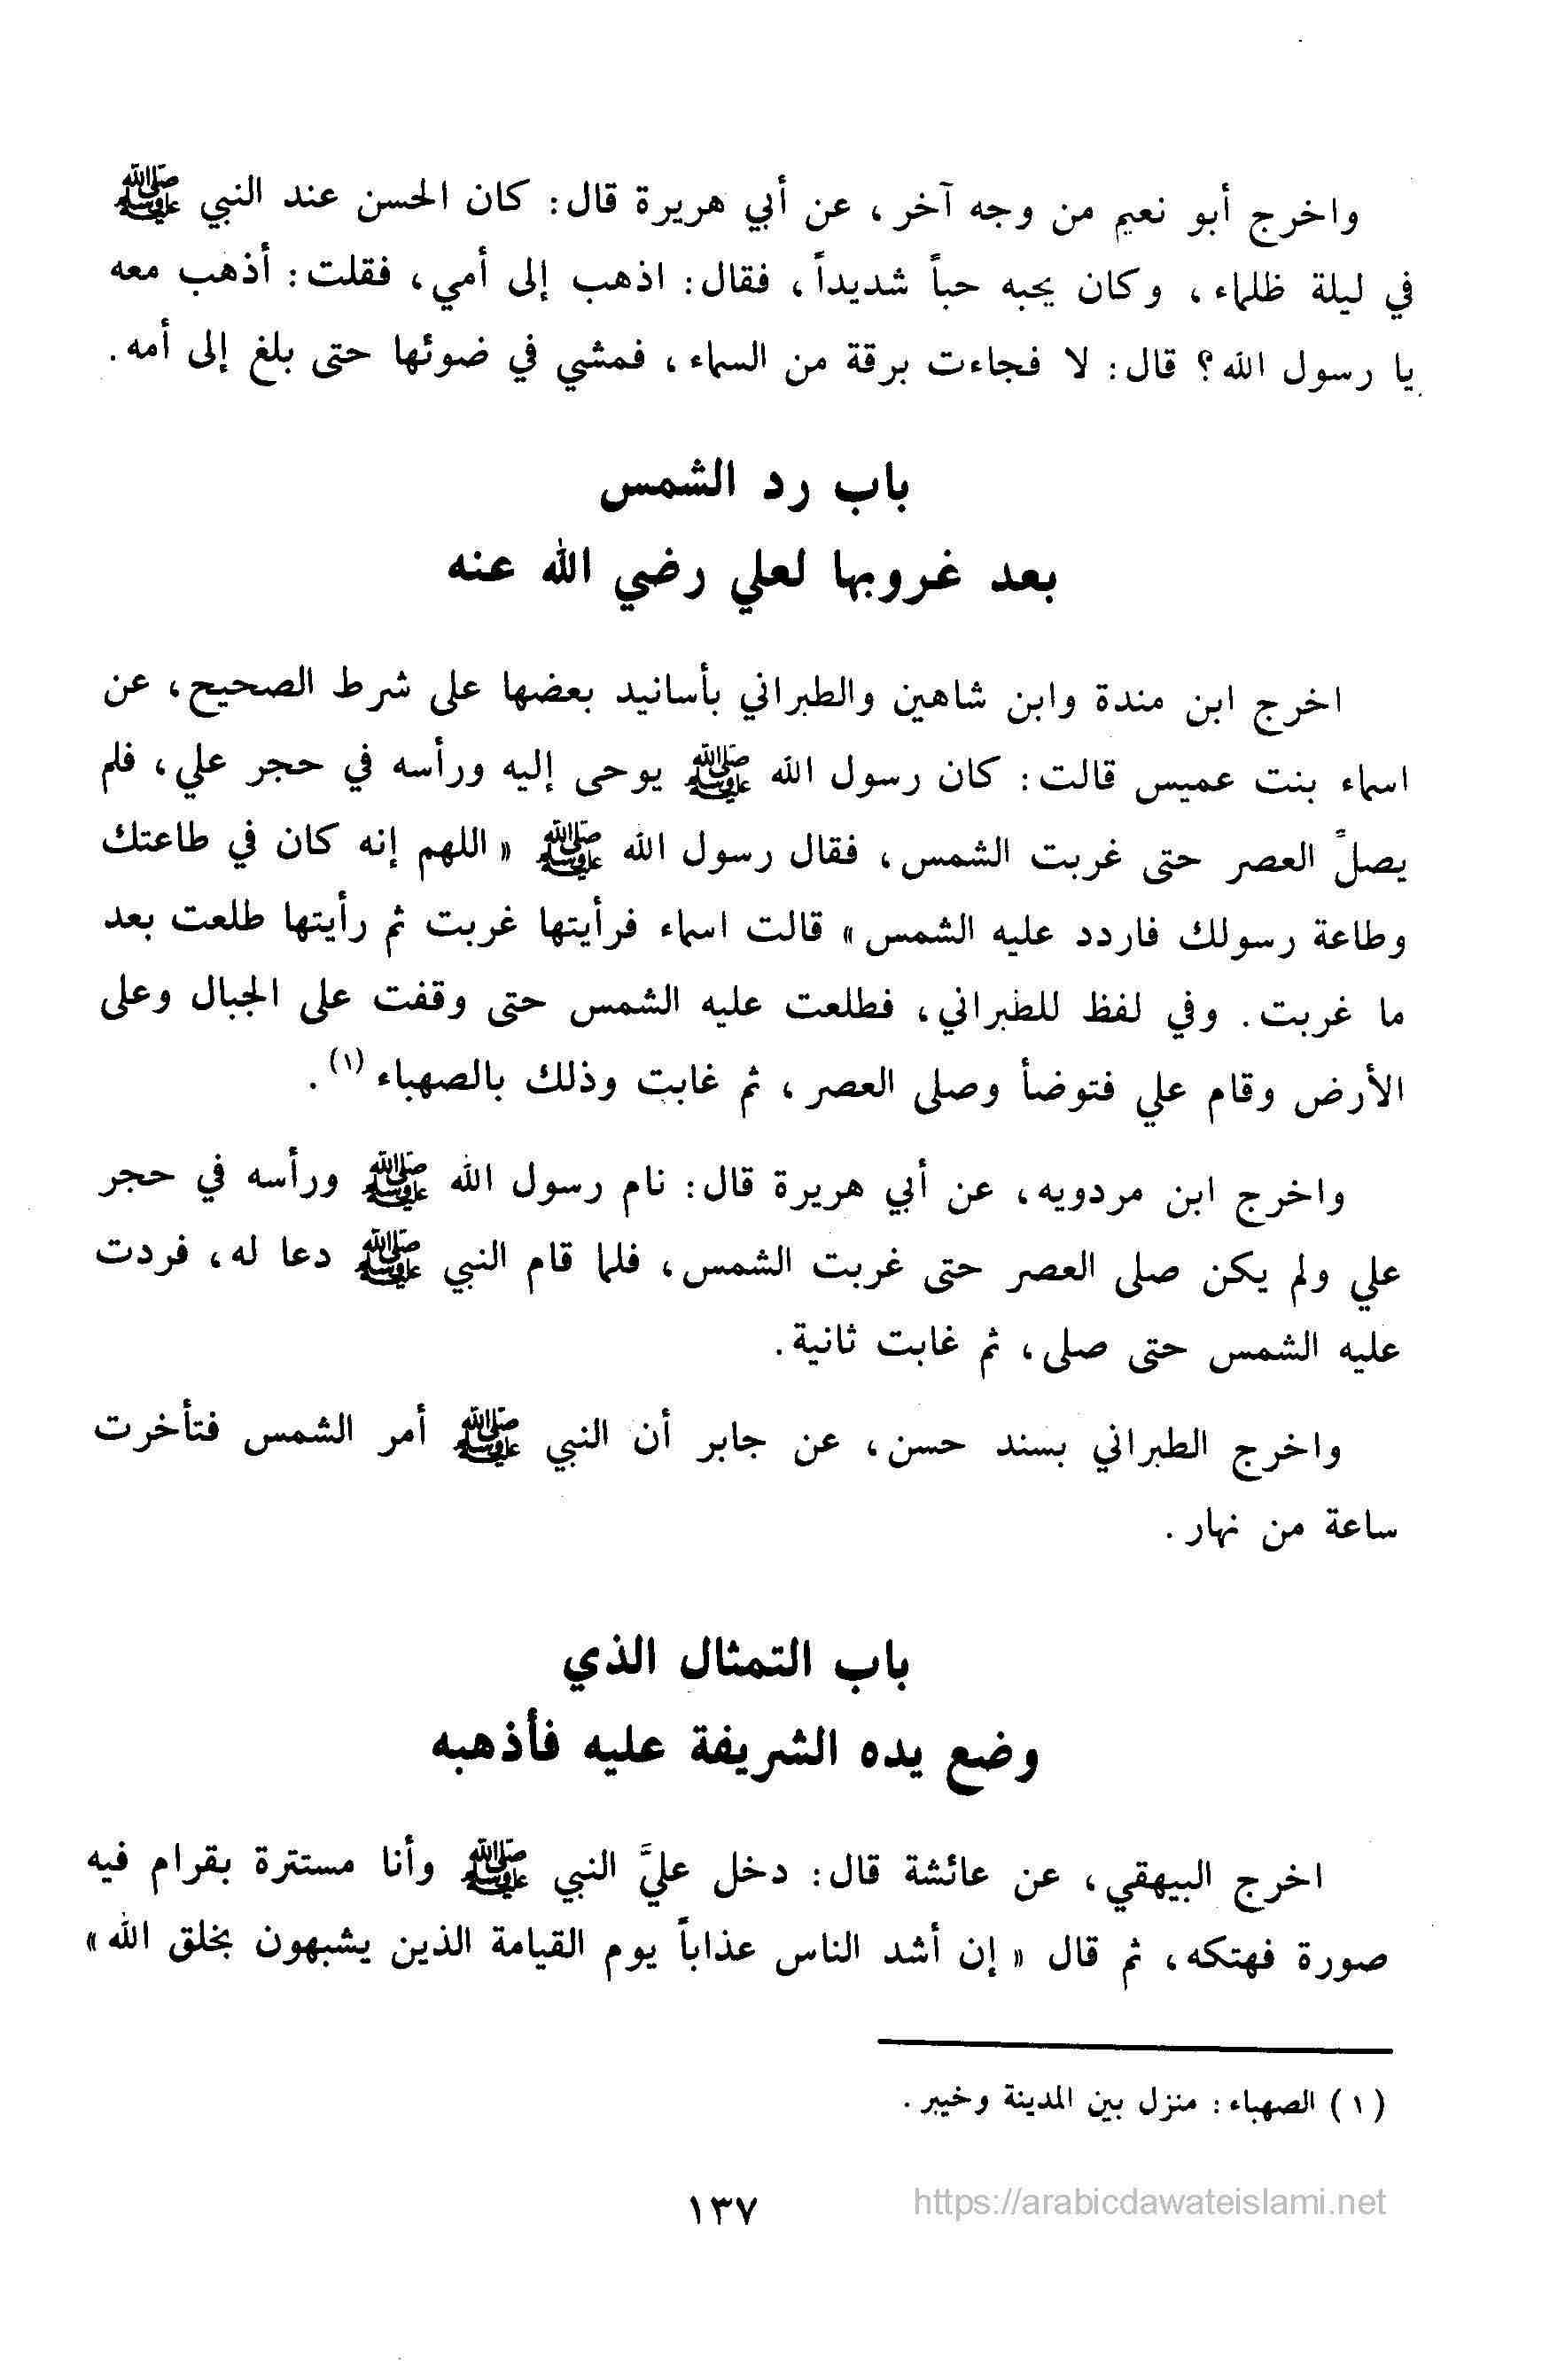 واخرج أبو نعيم من وجه آخر، عن أبي هريرة قال: كان الحسن عند النبي ﷺ
في ليلة ظلماء، وكان يحبه حباً شديداً، فقال: اذهب إلى أمي، فقلت: أذهب معه
يا رسول الله؟ قال: لا فجاءت برقة من السماء، فمشي في ضوئها حتى بلغ إلى أمه.
باب رد الشمس
بعد غروبها لعلي رضي الله عنه
اخرج ابن مندة وابن شاهين والطبراني بأسانيد بعضها على شرط الصحيح، عن
اسماء بنت عميس قالت: كان رسول الله ﷺ يوحى إليه ورأسه في حجر علي، فلم
يصلِّ العصر حتى غربت الشمس، فقال رسول الله ﷺ «اللهم إنه كان في طاعتك
وطاعة رسولك فاردد عليه الشمس» قالت اسماء فرأيتها غربت ثم رأيتها طلعت بعد
ما غربت. وفي لفظ للطبراني، فطلعت عليه الشمس حتى وقفت على الجبال وعلى
الأرض وقام علي فتوضأ وصلى العصر، ثم غابت وذلك بالصهباء (١).
واخرج ابن مردويه، عن أبي هريرة قال: نام رسول الله ﷺ ورأسه في حجر
علي ولم يكن صلى العصر حتى غربت الشمس، فلما قام النبي ﷺ دعا له، فردت
عليه الشمس حتى صلى، ثم غابت ثانية.
واخرج الطبراني بسند حسن، عن جابر أن النبي ﷺ أمر الشمس فتأخرت
ساعة من نهار.
باب التمثال الذي
وضع يده الشريفة عليه فأذهبه
اخرج البيهقي، عن عائشة قال: دخل عليَّ النبي ﷺ وأنا مستترة بقرام فيه
صورة فهتكه، ثم قال «إن أشد الناس عذاباً يوم القيامة الذين يشبهون بخلق الله»
(١) الصهباء: منزل بين المدينة وخيبر.
١٣٧
https://arabicdawateislami.net